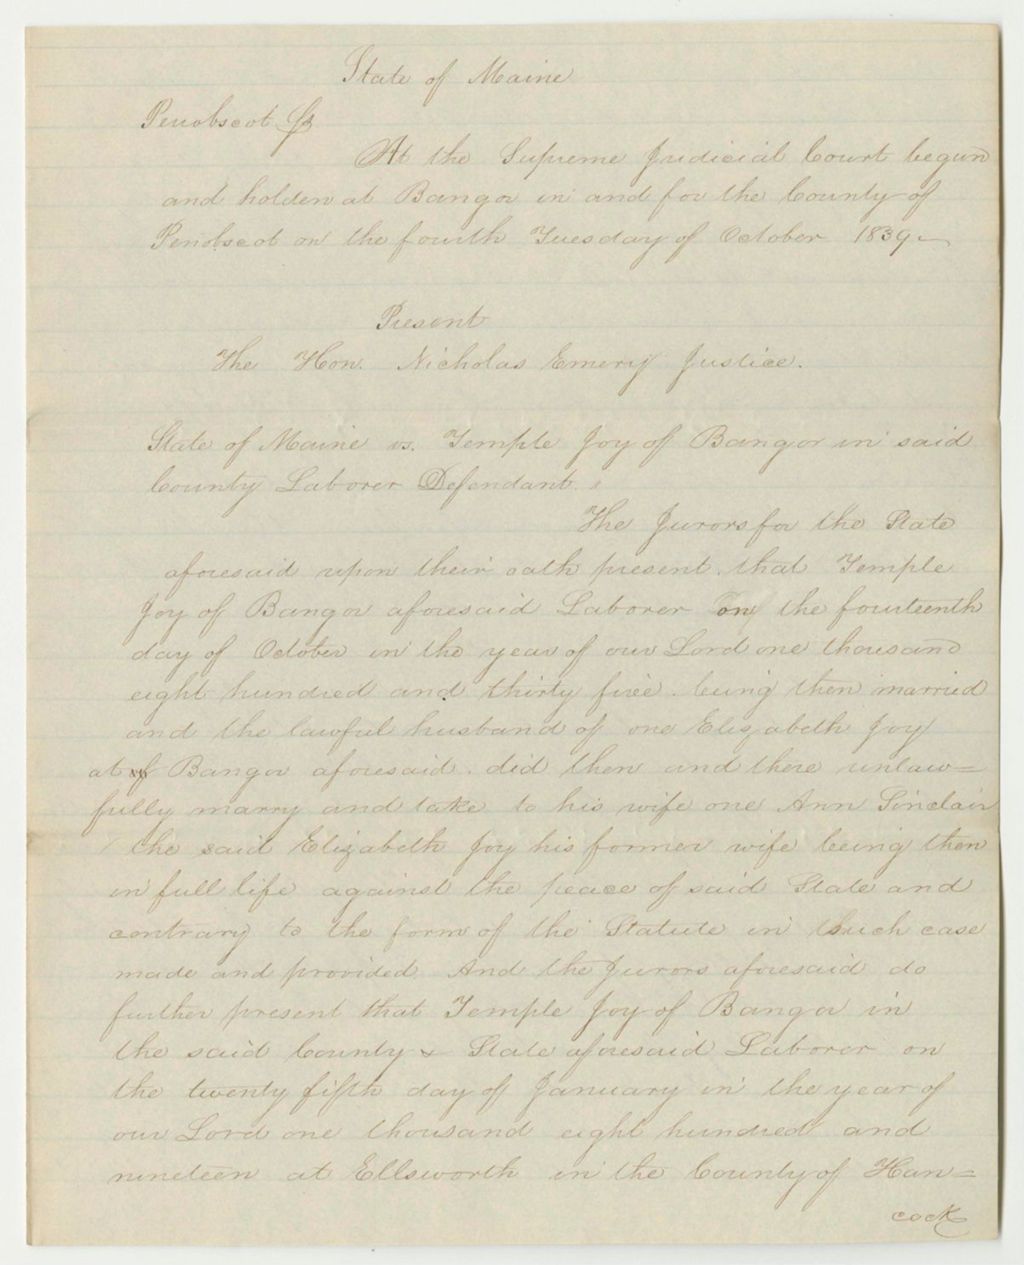 State of Maine
Penobscot Ss
At the Supreme Judicial Court begun
and holden at Bangor in and for the County of
Penobscot on the fourth Tuesday of October 1839
Present
The Hon. Nicholas Emery Justice.
State of Maine vs. Temple Joy of Bangor in said
County Laborer Defendant.
The Jurors for the State
aforesaid upon their oath present. that Temple
Joy of Bangor aforesaid Laborer on the fourteenth
day of October in the year of our Lord one thousand
eight hundred and thirty five. being then married
and the lawful husband of one Elizabeth Joy
at Bangor aforesaid. did then and there unlaw=
fully marry and take to his wife one Ann Sinclair
the said Elizabeth Joy his former wife being then
in full life against the peace of said State and
contrary to the form of the Statute in such case
made and provided And the Jurors aforesaid do
further present that Temple Joy of Bangor in
the said County & State aforesaid Laborer on
the twenty fifth day of January in the year of
our Lord one thousand eight hundred and
nineteen at Ellsworth in the County of Han=
cock